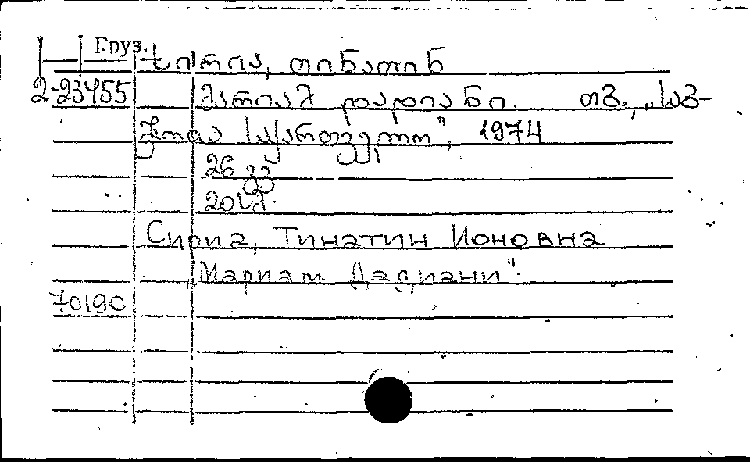 Груз.
სირია, თინათინ
2-23455 მარიამ დადიანი. თბ., „საბ-
ჭოთა საქართველო“, 1974
26 გვ
20 სმ.
Сириа, Тинатин Ионовна
„Мариам Дадиани“.
70190